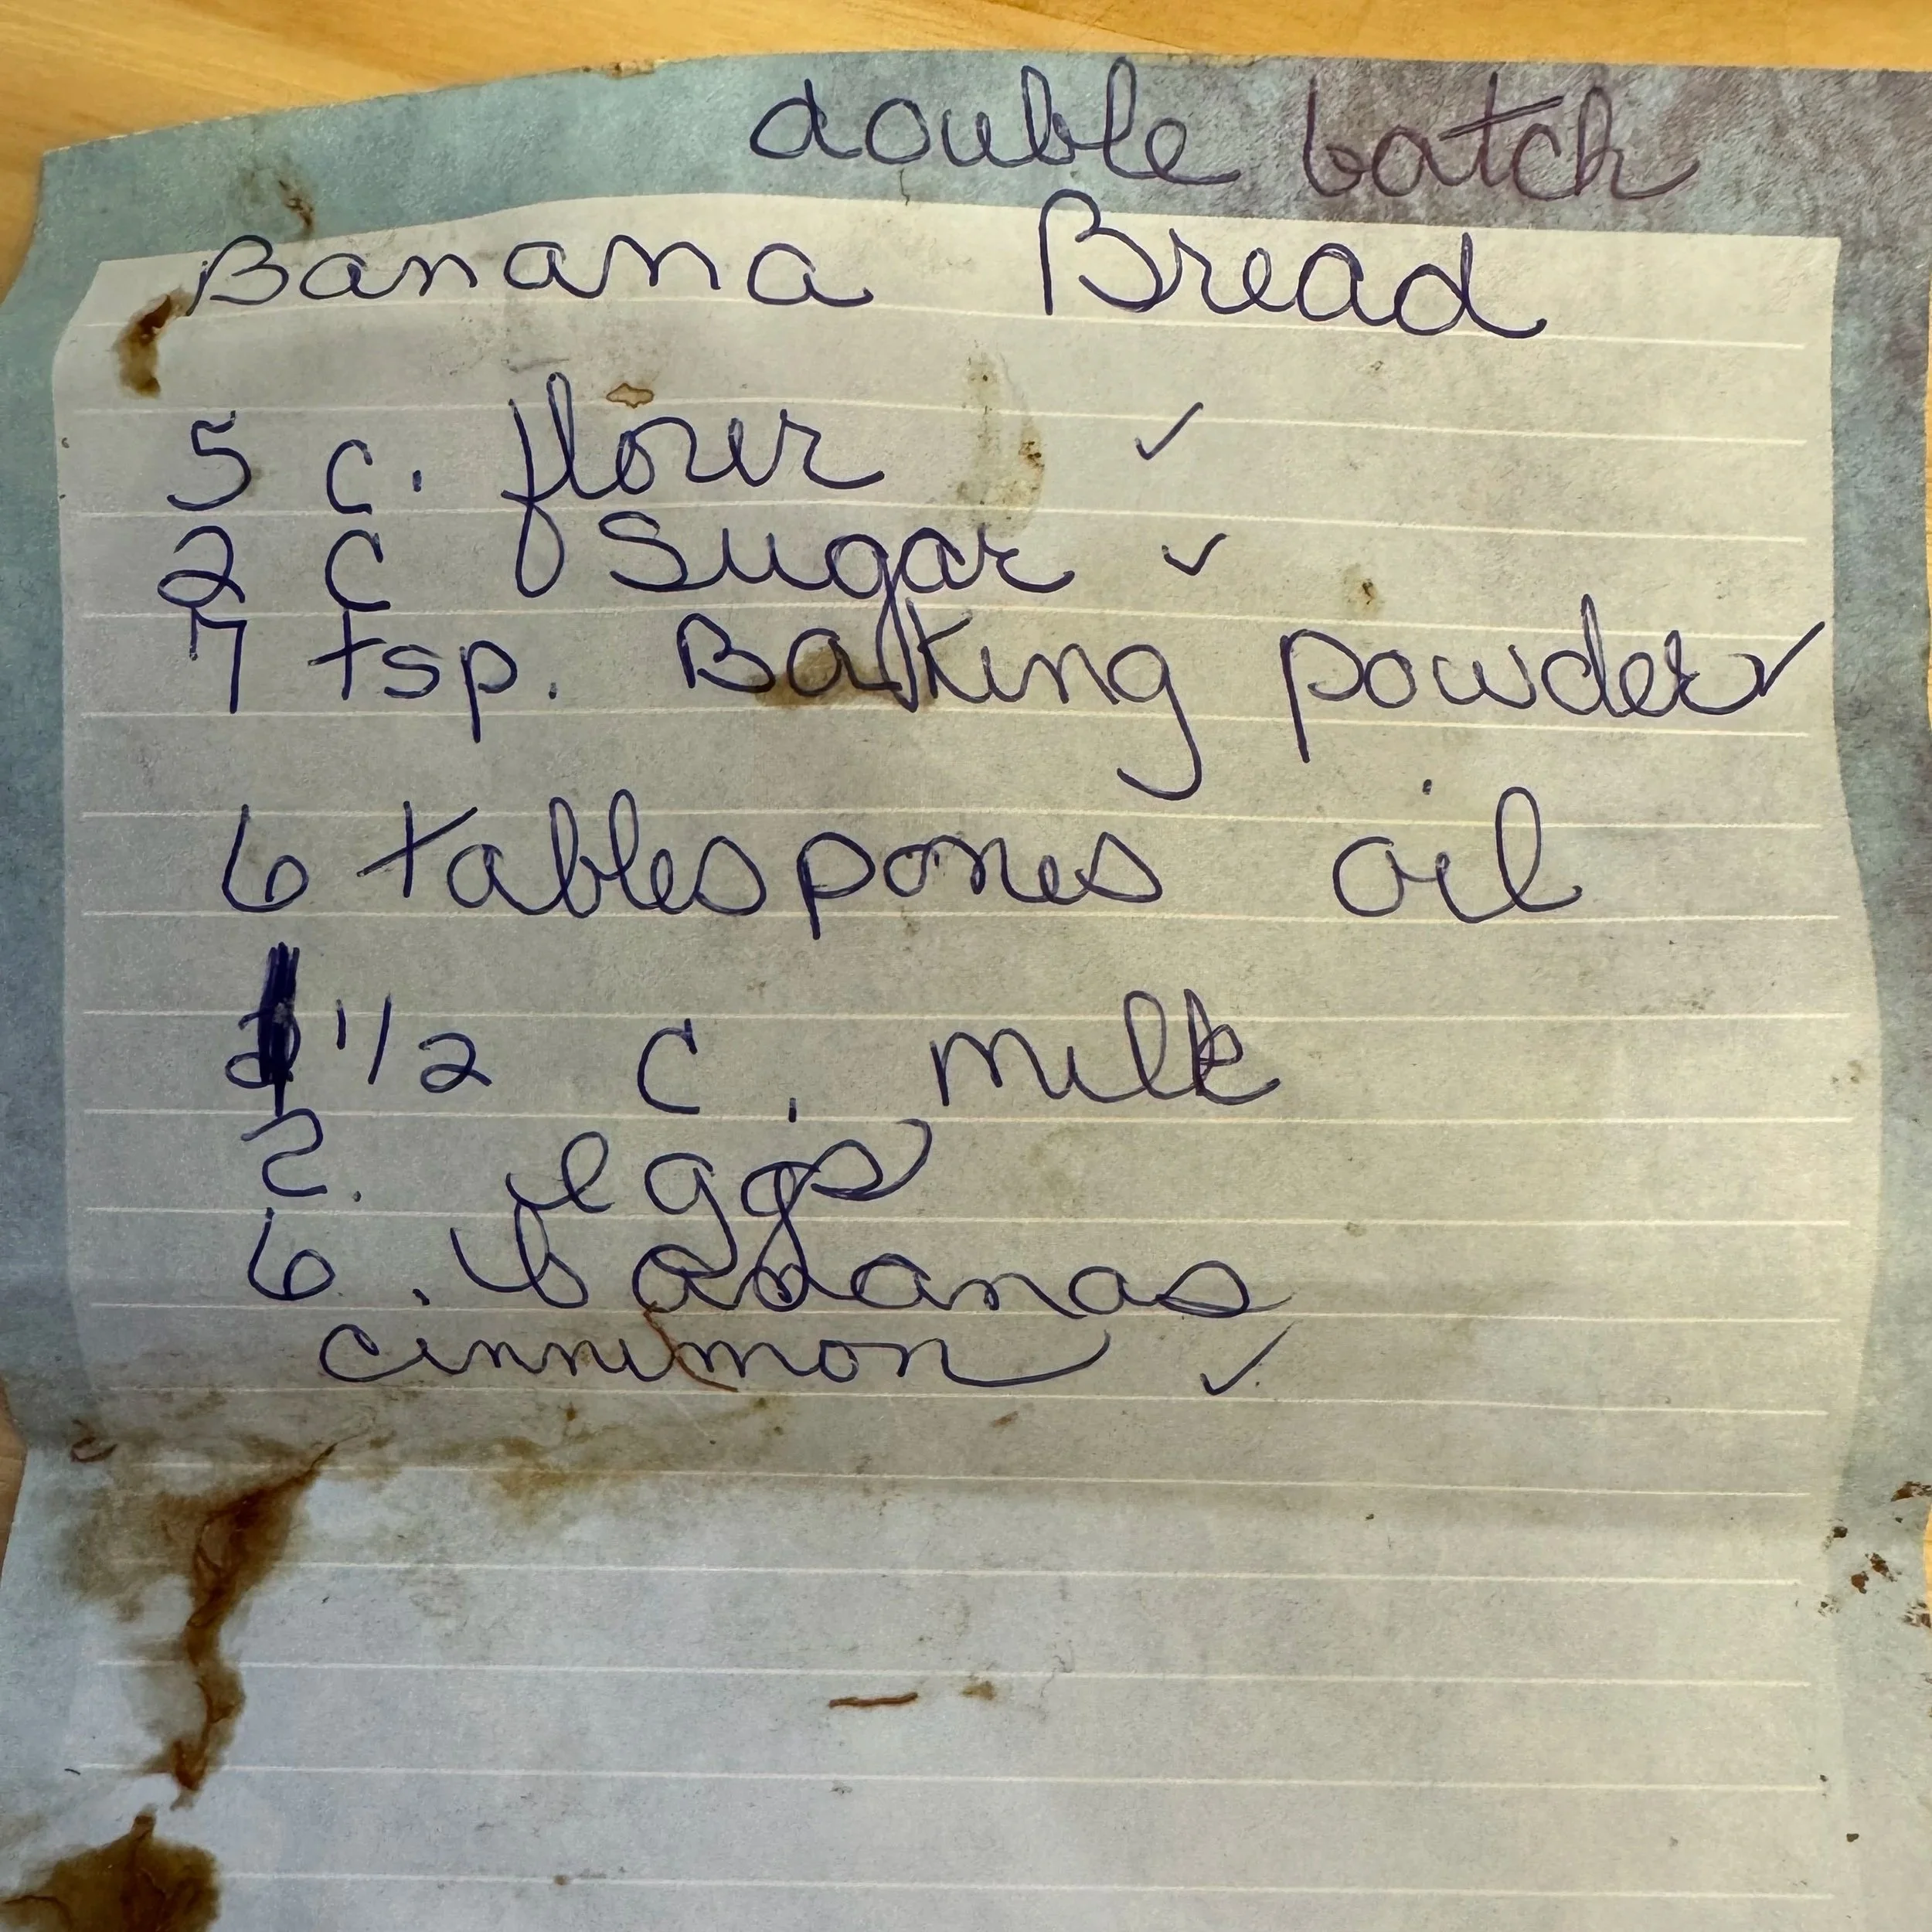 double batch
Banana Bread
5 c. flour ✓
2 c sugar ✓
7 tsp. Baking powder ✓
6 tablespones oil
1/2 c. milk
2. eggs
6. bananas
cinnimon ✓